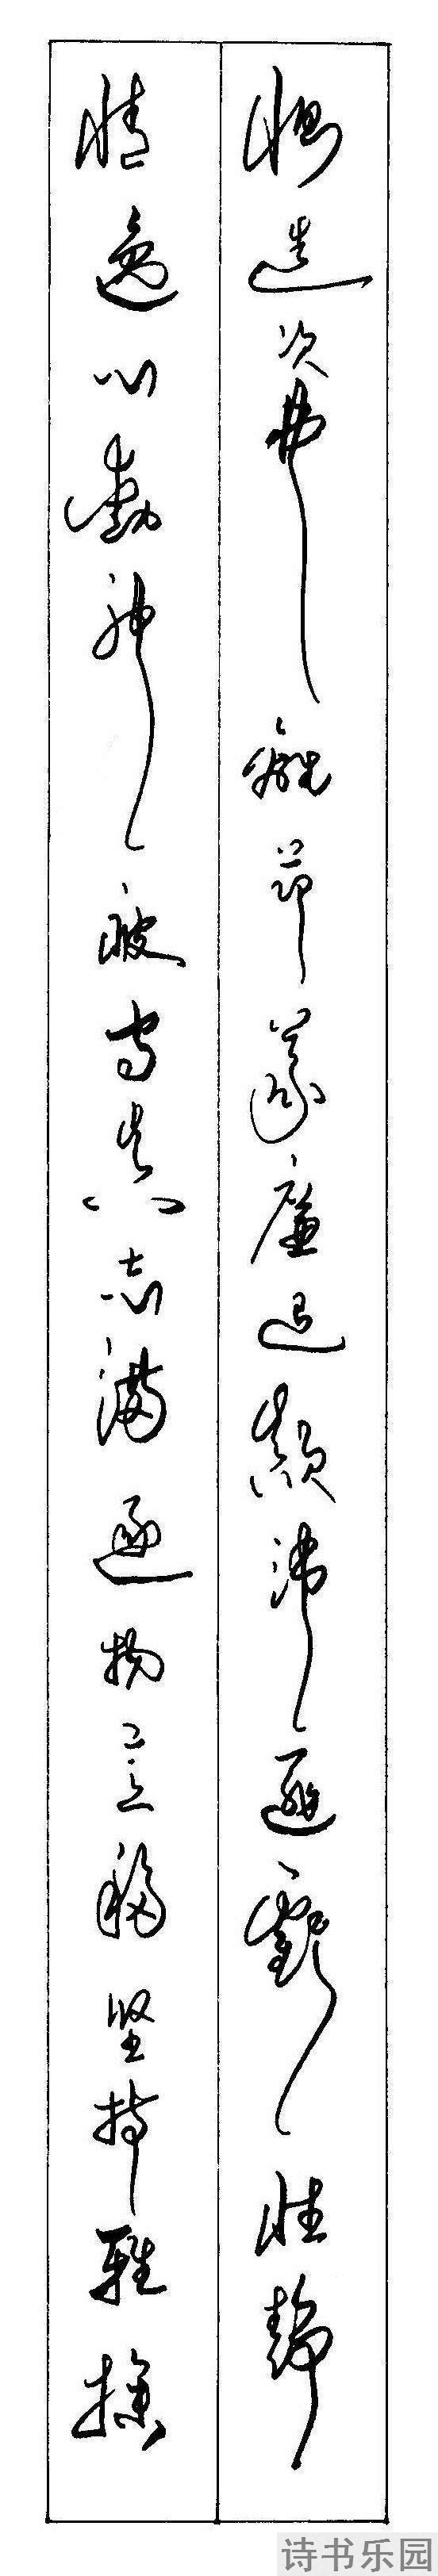 恻造次弗离节义廉退颠沛匪亏性静
情逸心动神疲守真志满逐物意移坚持雅操
诗书乐园